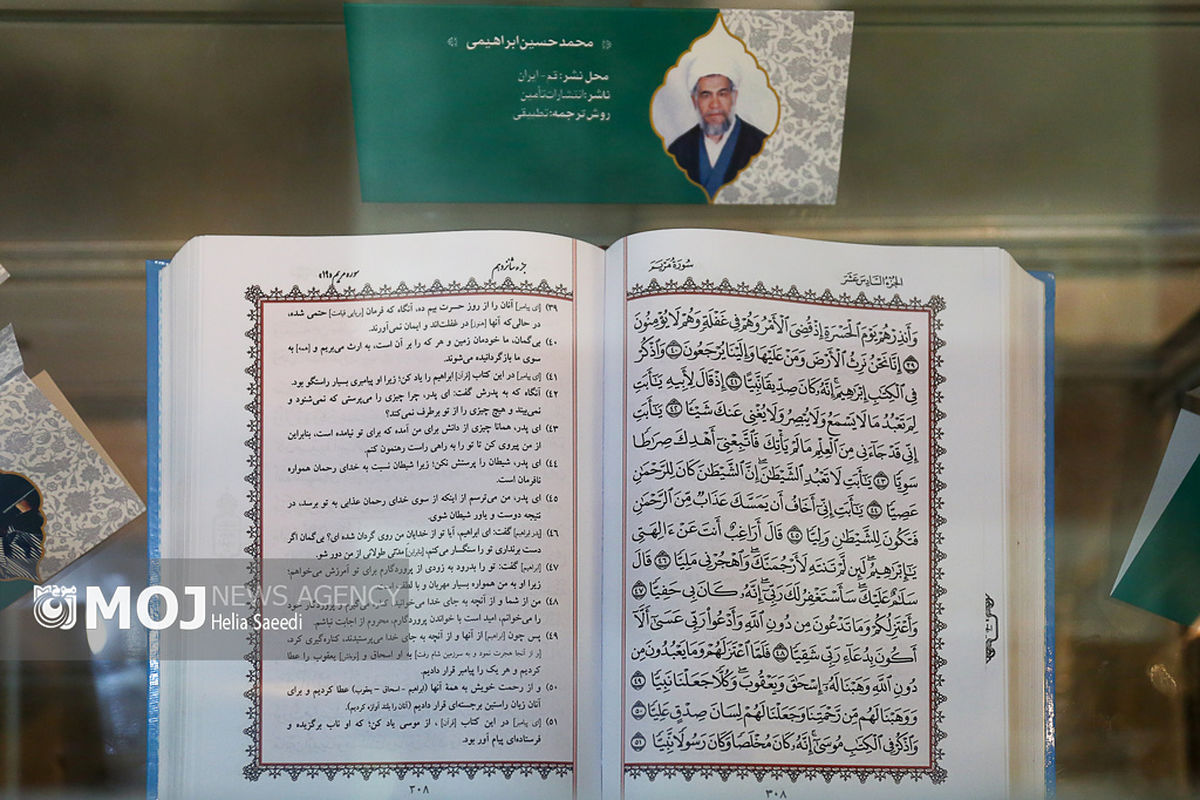 محمدحسین ابراهیمی
محل نشر: قم - ایران
ناشر: انتشارات تأمین
روش ترجمه: تطبیقی
سُورَةُ مَرْيَمَ
الجُزءُ السَّادِسَ عَشَرَ
وَأَنذِرْهُمْ يَوْمَ الْحَسْرَةِ إِذْ قُضِيَ الْأَمْرُ وَهُمْ فِي غَفْلَةٍ وَهُمْ لَا يُؤْمِنُونَ
٣٩ إِنَّا نَحْنُ نَرِثُ الْأَرْضَ وَمَنْ عَلَيْهَا وَإِلَيْنَا يُرْجَعُونَ ٤٠ وَاذْكُرْ
فِي الْكِتَابِ إِبْرَاهِيمَ إِنَّهُ كَانَ صِدِّيقًا نَّبِيًّا ٤١ إِذْ قَالَ لِأَبِيهِ يَا أَبَتِ
لِمَ تَعْبُدُ مَا لَا يَسْمَعُ وَلَا يُبْصِرُ وَلَا يُغْنِي عَنكَ شَيْئًا ٤٢ يَا أَبَتِ
إِنِّي قَدْ جَاءَنِي مِنَ الْعِلْمِ مَا لَمْ يَأْتِكَ فَاتَّبِعْنِي أَهْدِكَ صِرَاطًا
سَوِيًّا ٤٣ يَا أَبَتِ لَا تَعْبُدِ الشَّيْطَانَ إِنَّ الشَّيْطَانَ كَانَ لِلرَّحْمَٰنِ
عَصِيًّا ٤٤ يَا أَبَتِ إِنِّي أَخَافُ أَن يَمَسَّكَ عَذَابٌ مِّنَ الرَّحْمَٰنِ
فَتَكُونَ لِلشَّيْطَانِ وَلِيًّا ٤٥ قَالَ أَرَاغِبٌ أَنتَ عَنْ آلِهَتِي
يَا إِبْرَاهِيمُ لَئِن لَّمْ تَنتَهِ لَأَرْجُمَنَّكَ وَاهْجُرْنِي مَلِيًّا ٤٦ قَالَ
سَلَامٌ عَلَيْكَ سَأَسْتَغْفِرُ لَكَ رَبِّي إِنَّهُ كَانَ بِي حَفِيًّا ٤٧
وَأَعْتَزِلُكُمْ وَمَا تَدْعُونَ مِن دُونِ اللَّهِ وَأَدْعُو رَبِّي عَسَىٰ أَلَّا
أَكُونَ بِدُعَاءِ رَبِّي شَقِيًّا ٤٨ فَلَمَّا اعْتَزَلَهُمْ وَمَا يَعْبُدُونَ مِن
دُونِ اللَّهِ وَهَبْنَا لَهُ إِسْحَاقَ وَيَعْقُوبَ وَكُلًّا جَعَلْنَا نَبِيًّا ٤٩
وَوَهَبْنَا لَهُم مِّن رَّحْمَتِنَا وَجَعَلْنَا لَهُمْ لِسَانَ صِدْقٍ عَلِيًّا ٥٠
وَاذْكُرْ فِي الْكِتَابِ مُوسَىٰ إِنَّهُ كَانَ مُخْلَصًا وَكَانَ رَسُولًا نَّبِيًّا ٥١
٣٠٨
جزء شانزدهم
سوره مریم «۱۹»
۳۹) [ای پیامبر] آنان را از روز حسرت بیم ده، آنگاه که فرمان [برپایی قیامت] حتمی شده،
در حالی‌که آنها [هنوز] در غفلت‌اند و ایمان نمی‌آورند.
۴۰) بی‌گمان، ما خودمان زمین و هر که را بر آن است، به ارث می‌بریم و [همه] به
سوی ما بازگردانیده می‌شوند.
۴۱) [ای پیامبر] در این کتاب [قرآن] ابراهیم را یاد کن؛ زیرا او پیامبری بسیار راستگو بود.
۴۲) آنگاه که به پدرش گفت: ای پدر، چرا چیزی را می‌پرستی که نمی‌شنود و
نمی‌بیند و هیچ چیزی را از تو برطرف نمی‌کند؟
۴۳) ای پدر، همانا چیزی از دانش برای من آمده که برای تو نیامده است، بنابراین
از من پیروی کن تا تو را به راهی راست رهنمون کنم.
۴۴) ای پدر، شیطان را پرستش نکن؛ زیرا شیطان نسبت به خدای رحمان همواره
نافرمان است.
۴۵) ای پدر، من می‌ترسم از اینکه از سوی خدای رحمان عذابی به تو برسد، در
نتیجه دوست و یاور شیطان شوی.
۴۶) [پدر ابراهیم] گفت: ای ابراهیم، آیا تو از خدایان من روی گردان شده ای؟ بی‌گمان اگر
دست برنداری تو را سنگسار می‌کنم، [بنابراین] مدتی طولانی از من دور شو.
۴۷) [ابراهیم] گفت: تو را بدرود به زودی از پروردگارم برای تو آمرزش می‌خواهم؛
زیرا او به من همواره بسیار مهربان و با لطف
۴۸) من از شما و از آنچه به جای خدا می‌خوانید، کناره می‌گیرم و پروردگار خود
را می‌خوانم، امید است با خواندن پروردگارم، محروم از اجابت نباشم.
۴۹) پس چون [ابراهیم] از آنها و از آنچه به جای خدا می‌پرستیدند، کناره‌گیری کرد،
[و از آنجا هجرت نمود و به سرزمین شام رفت] به او اسحاق و [نوه‌اش] یعقوب را عطا
کردیم و هر یک را پیامبر قرار دادیم.
۵۰) و از رحمت خویش به همهٔ آنها (ابراهیم - اسحاق - یعقوب) عطا کردیم و برای
آنان زبان راستین برجسته‌ای قرار دادیم (آنان را بلند آوازه کردیم).
۵۱) [ای پیامبر] در این کتاب [قرآن]، از موسی یاد کن؛ که او ناب برگزیده و
فرستاده‌ای پیام آور بود.
۳۰۸
موج MOJ NEWS AGENCY
Helia Saeedi